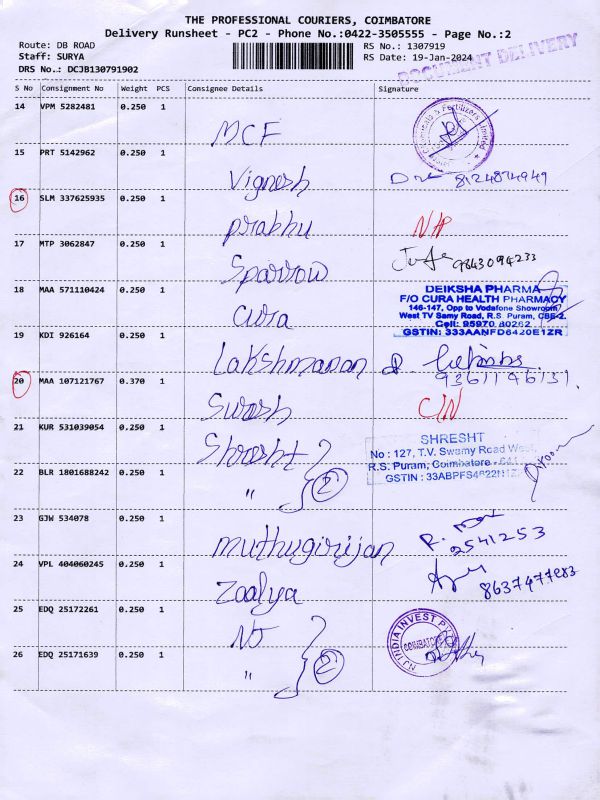 THE PROFESSIONAL COURIERS, COIMBATORE
Delivery Runsheet - PC2 - Phone No.:0422-3505555 - Page No.:2
Route: DB ROAD
RS No.: 1307919
Staff: SURYA
RS Date: 19-Jan-2024
DRS No.: DCJB130791902
DOCUMENT DELIVERY
S No Consignment No Weight PCS Consignee Details Signature
14 VPM 5282481 0.250 1 MCF
Chemicals & Fertilizers Limited
15 PRT 5142962 0.250 1 Vignesh 8124874949
16 SLM 337625935 0.250 1 Prabhu N/P
17 MTP 3062847 0.250 1 Sparrow 9843094233
18 MAA 571110424 0.250 1 Cura
DEIKSHA PHARMA
F/O CURA HEALTH PHARMACY
146-147, Opp to Vodafone Showroom
West TV Samy Road, R.S Puram, CBE-2.
Cell: 95970 80262
GSTIN: 333AANFD6420E1ZR
19 KDI 926164 0.250 1 Lakshmanan 9361196131.
20 MAA 107121767 0.370 1 Suresh C/N
21 KUR 531039054 0.250 1 Shresht
SHRESHT
No : 127, T.V. Swamy Road West
R.S. Puram, Coimbatore - 641
GSTIN : 33ABPFS4822N1Z
22 BLR 1801688242 0.250 1 " 2
23 GJW 534078 0.250 1 Muthugirijan 2541253
24 VPL 404060245 0.250 1 Zoalya 8637477283
25 EDQ 25172261 0.250 1 NJ
NJ INDIA INVEST P
COIMBATORE
26 EDQ 25171639 0.250 1 " 2